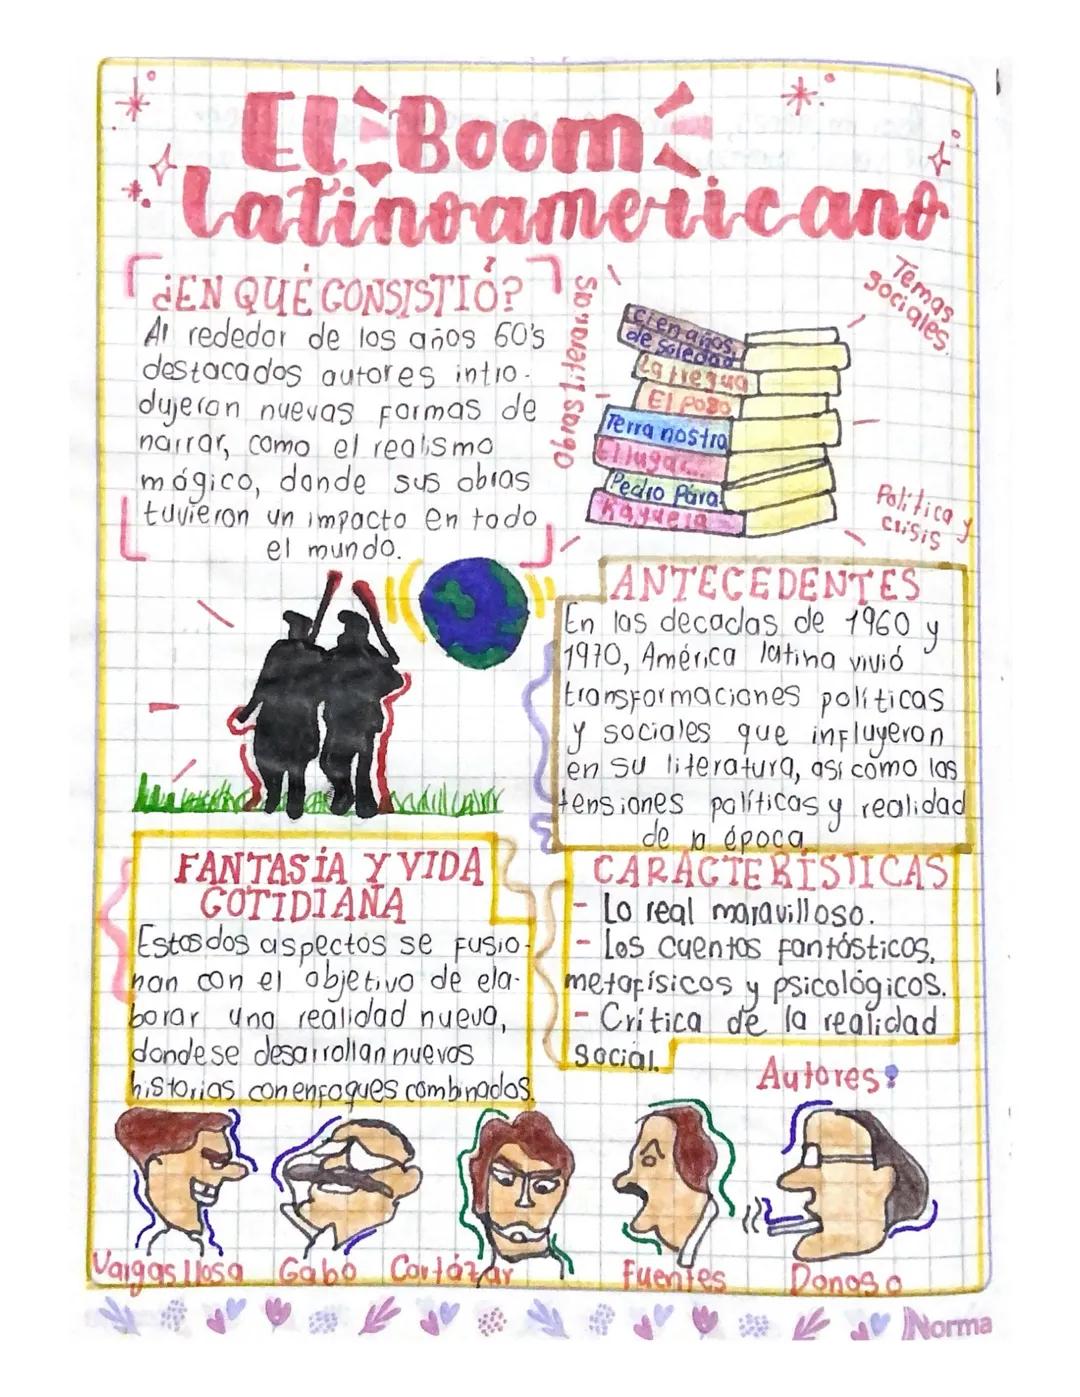 El Boom
Latinoamericano
¿EN QUÉ CONSISTIÓ?
Al rededor de los años 60's
destacados autores intro-
dujeron nuevas formas de
narrar, como el realismo
mágico, donde sus obras
tuvieron un impacto en todo
el mundo.
Obras literarias
Temas
sociales.
cien años
de soledad
La tregua
El pozo
Terra nostra
El lugar...
Pedro Pára
Rayuela
Política y
crisis
ANTECEDENTES
En las decadas de 1960 y
1970, América latina vivió
transformaciones políticas
y sociales que influyeron
en su literatura, así como las
tensiones políticas y realidad
de la época
FANTASÍA Y VIDA
COTIDIANA
Estos dos aspectos se fusio-
nan con el objetivo de ela-
borar una realidad nueva,
donde se desarrollan nuevas
historias con enfoques combinados.
CARACTERÍSTICAS
- Lo real maravilloso.
- Los cuentos fantásticos,
metafísicos y psicológicos.
- Crítica de la realidad
social.
Autores:
Vargas llosa Gabo Cortázar Fuentes Donoso
Norma